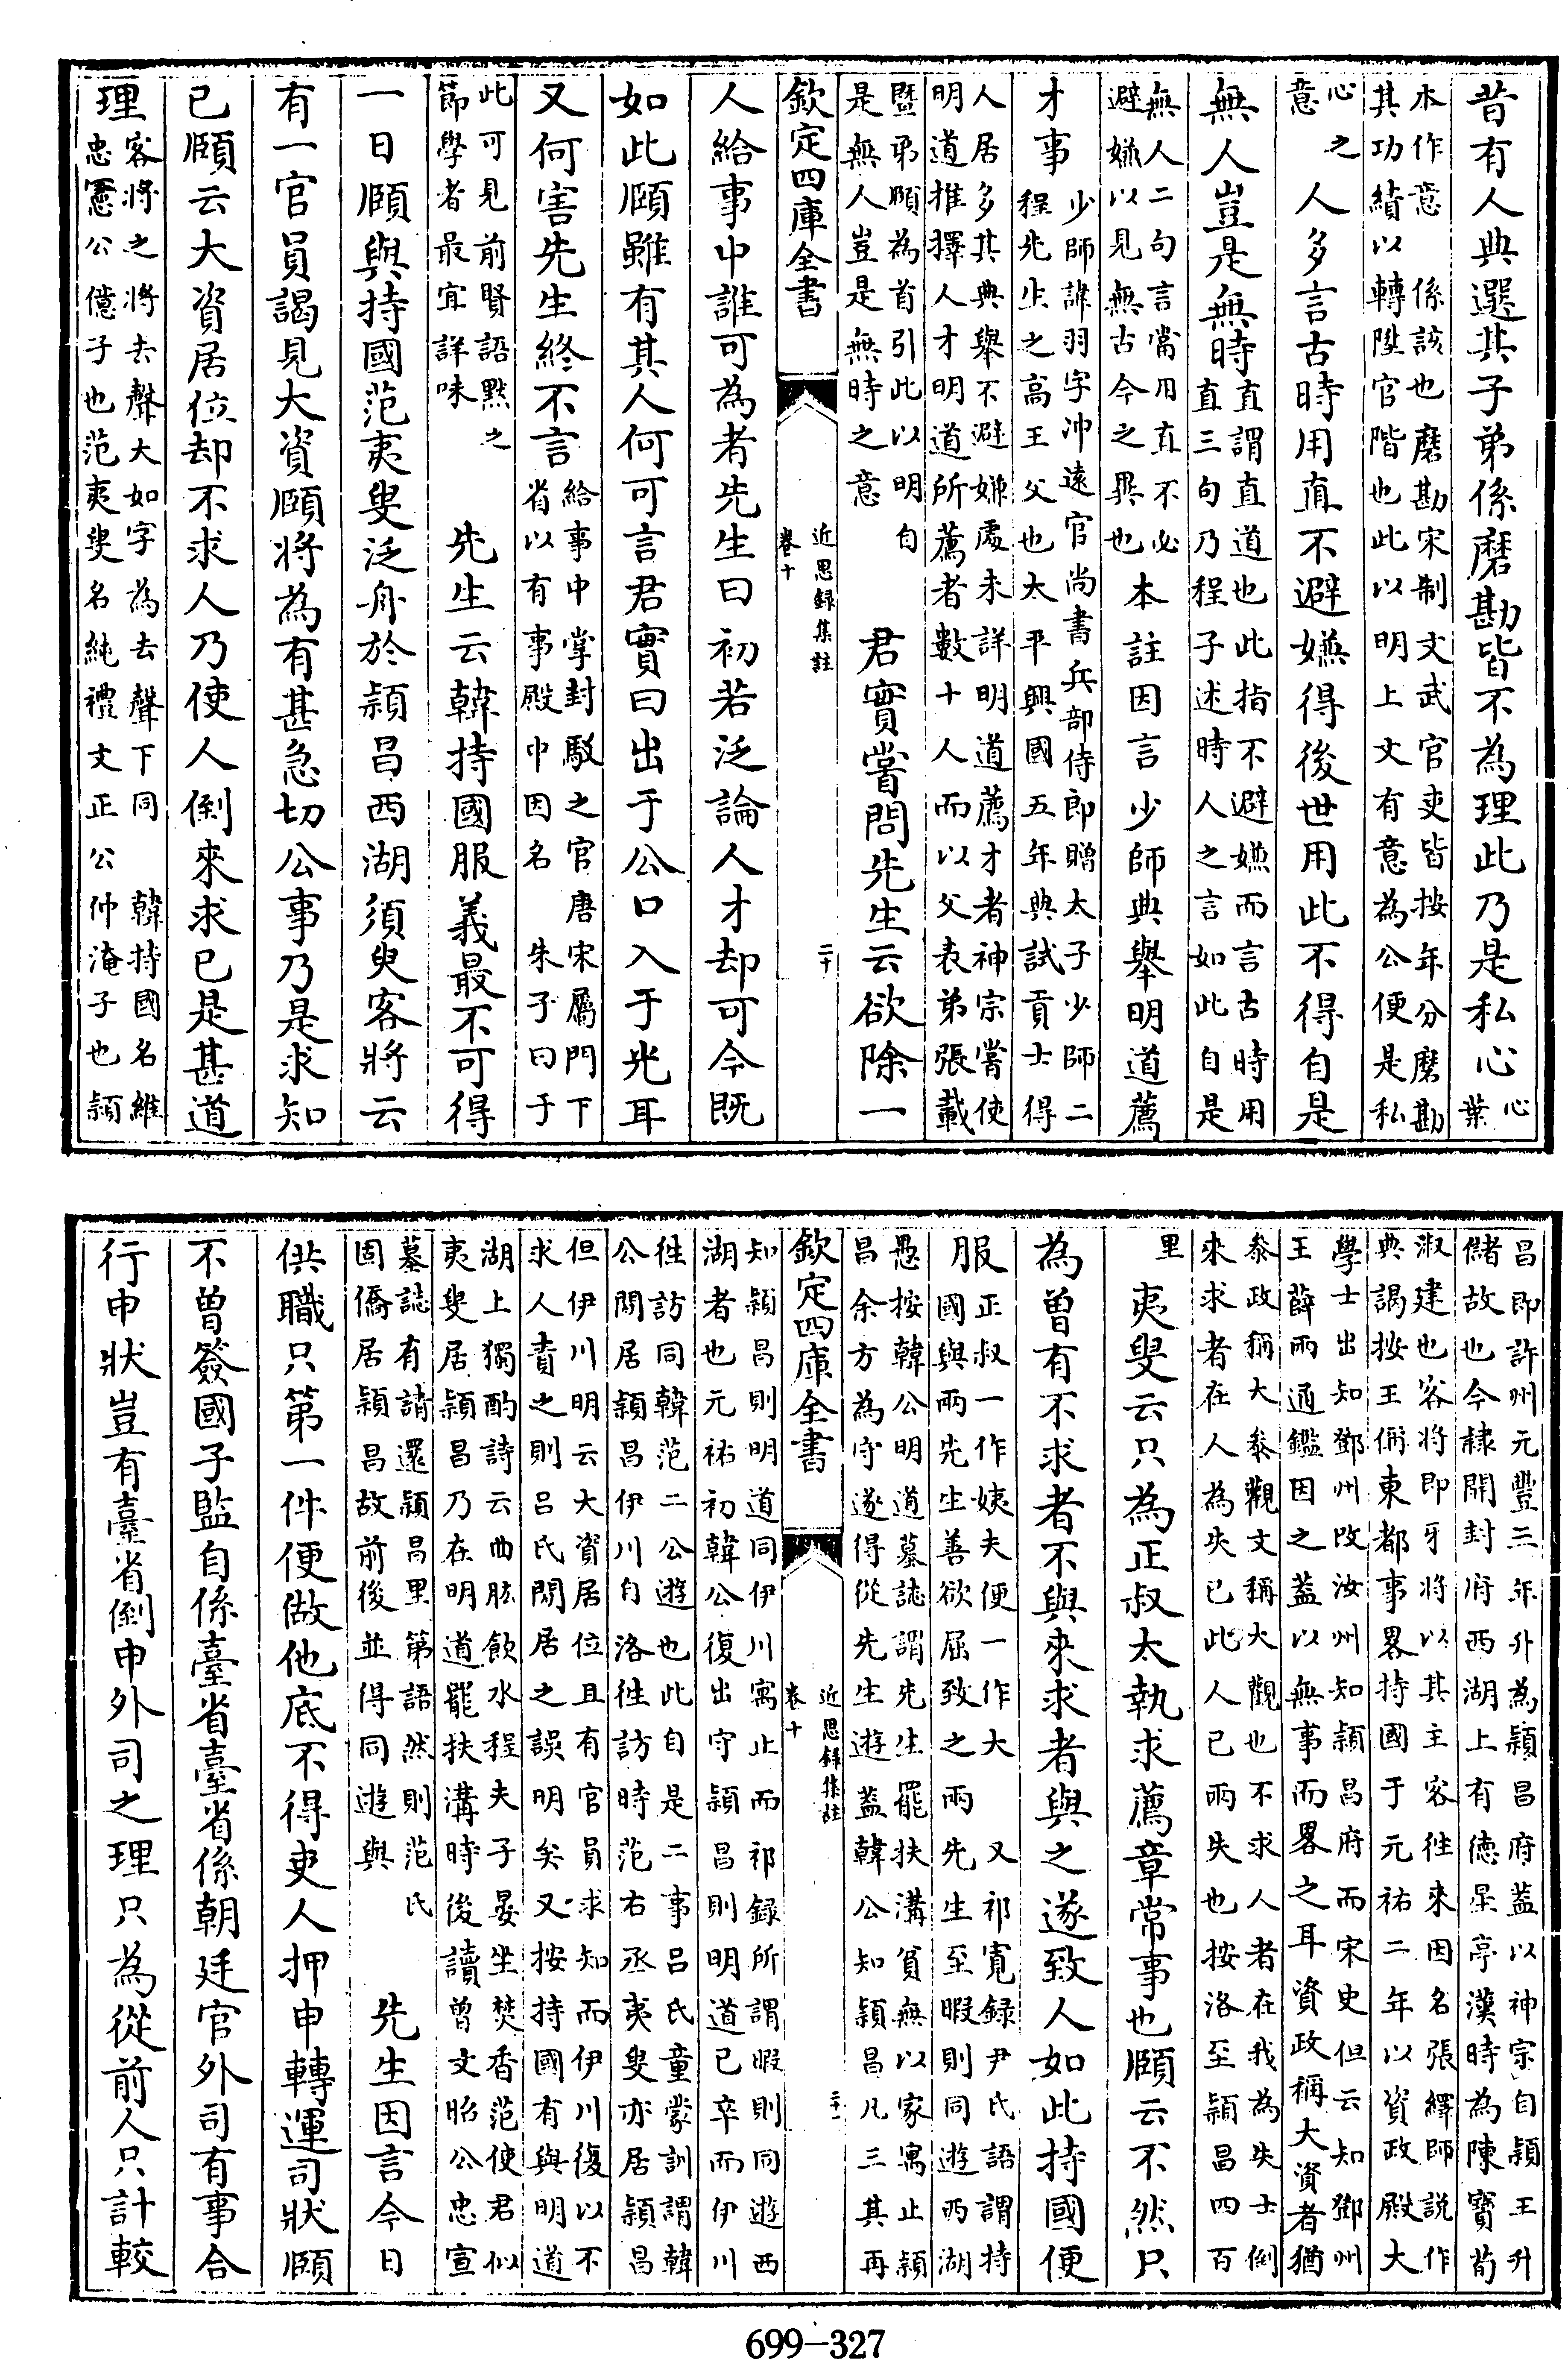 昔有人典選其子弟係磨勘皆不為理此乃是私心心葉
本作意　係該也磨勘宋制文武官吏皆按年分磨勘
其功績以轉陞官階也此以明上文有意為公便是私
心之
意
人多言古時用直不避嫌得後世用此不得自是
無人豈是無時直謂直道也此指不避嫌而言古時用
直三句乃程子述時人之言如此自是
無人二句言當用直不必
避嫌以見無古今之異也
本註因言少師典舉明道薦
才事少師諱羽字冲遠官尚書兵部侍郎贈太子少師二
程先生之高王父也太平興國五年典試貢士得
人居多其典舉不避嫌處未詳明道薦才者神宗嘗使
明道推擇人才明道所薦者數十人而以父表弟張載
暨弟頤為首引此以明自
是無人豈是無時之意
君實嘗問先生云欲除一
欽定四庫全書
近思録集註
卷十
二十
人給事中誰可為者先生曰初若泛論人才却可今既
如此頤雖有其人何可言君實曰出于公口入于光耳
又何害先生終不言給事中掌封駁之官唐宋屬門下
省以有事殿中因名　朱子曰于
此可見前賢語黙之
節學者最宜詳味
先生云韓持國服義最不可得
一日頤與持國范夷叟泛舟於頴昌西湖須臾客將云
有一官員謁見大資頤將為有甚急切公事乃是求知
已頤云大資居位却不求人乃使人倒來求已是甚道
理客將之將去聲大如字為去聲下同　韓持國名維
忠憲公億子也范夷叟名純禮文正公仲淹子也頴
昌即許州元豐三年升為頴昌府葢以神宗自頴王升
儲故也今隸開封府西湖上有德星亭漢時為陳寔荀
淑建也客將即牙將以其主客徃來因名張繹師説作
典謁按王偁東都事畧持國于元祐二年以資政殿大
學士出知鄧州改汝州知頴昌府而宋史但云知鄧州
王薛兩通鑑因之葢以無事而畧之耳資政稱大資者猶
叅政稱大叅觀文稱大觀也不求人者在我為失士倒
來求者在人為失已此人已兩失也按洛至頴昌四百
里
夷叟云只為正叔太執求薦章常事也頤云不然只
為曾有不求者不與來求者與之遂致人如此持國便
服正叔一作姨夫便一作大　又祁寛録尹氏語謂持
國與兩先生善欲屈致之兩先生至暇則同遊西湖
愚按韓公明道墓誌謂先生罷扶溝貧無以家寓止頴
昌余方為守遂得從先生遊葢韓公知頴昌凡三其再
欽定四庫全書
近思録集註
卷十
二十一
知頴昌則明道同伊川寓止而祁録所謂暇則同遊西
湖者也元祐初韓公復出守頴昌則明道已卒而伊川
徃訪同韓范二公遊也此自是二事呂氏童蒙訓謂韓
公閒居頴昌伊川自洛徃訪時范右丞夷叟亦居頴昌
但伊川明云大資居位且有官員求知而伊川復以不
求人責之則呂氏閒居之誤明矣又按持國有與明道
湖上獨酌詩云曲肱飲水程夫子晏坐焚香范使君似
夷叟居頴昌乃在明道罷扶溝時後讀曾文昭公忠宣
墓誌有請還頴昌里第語然則范氏
固僑居頴昌故前後並得同遊與
先生因言今日
供職只第一件便做他底不得吏人押申轉運司狀頤
不曾簽國子監自係臺省臺省係朝廷官外司有事合
行申狀豈有臺省倒申外司之理只為從前人只計較
699-327